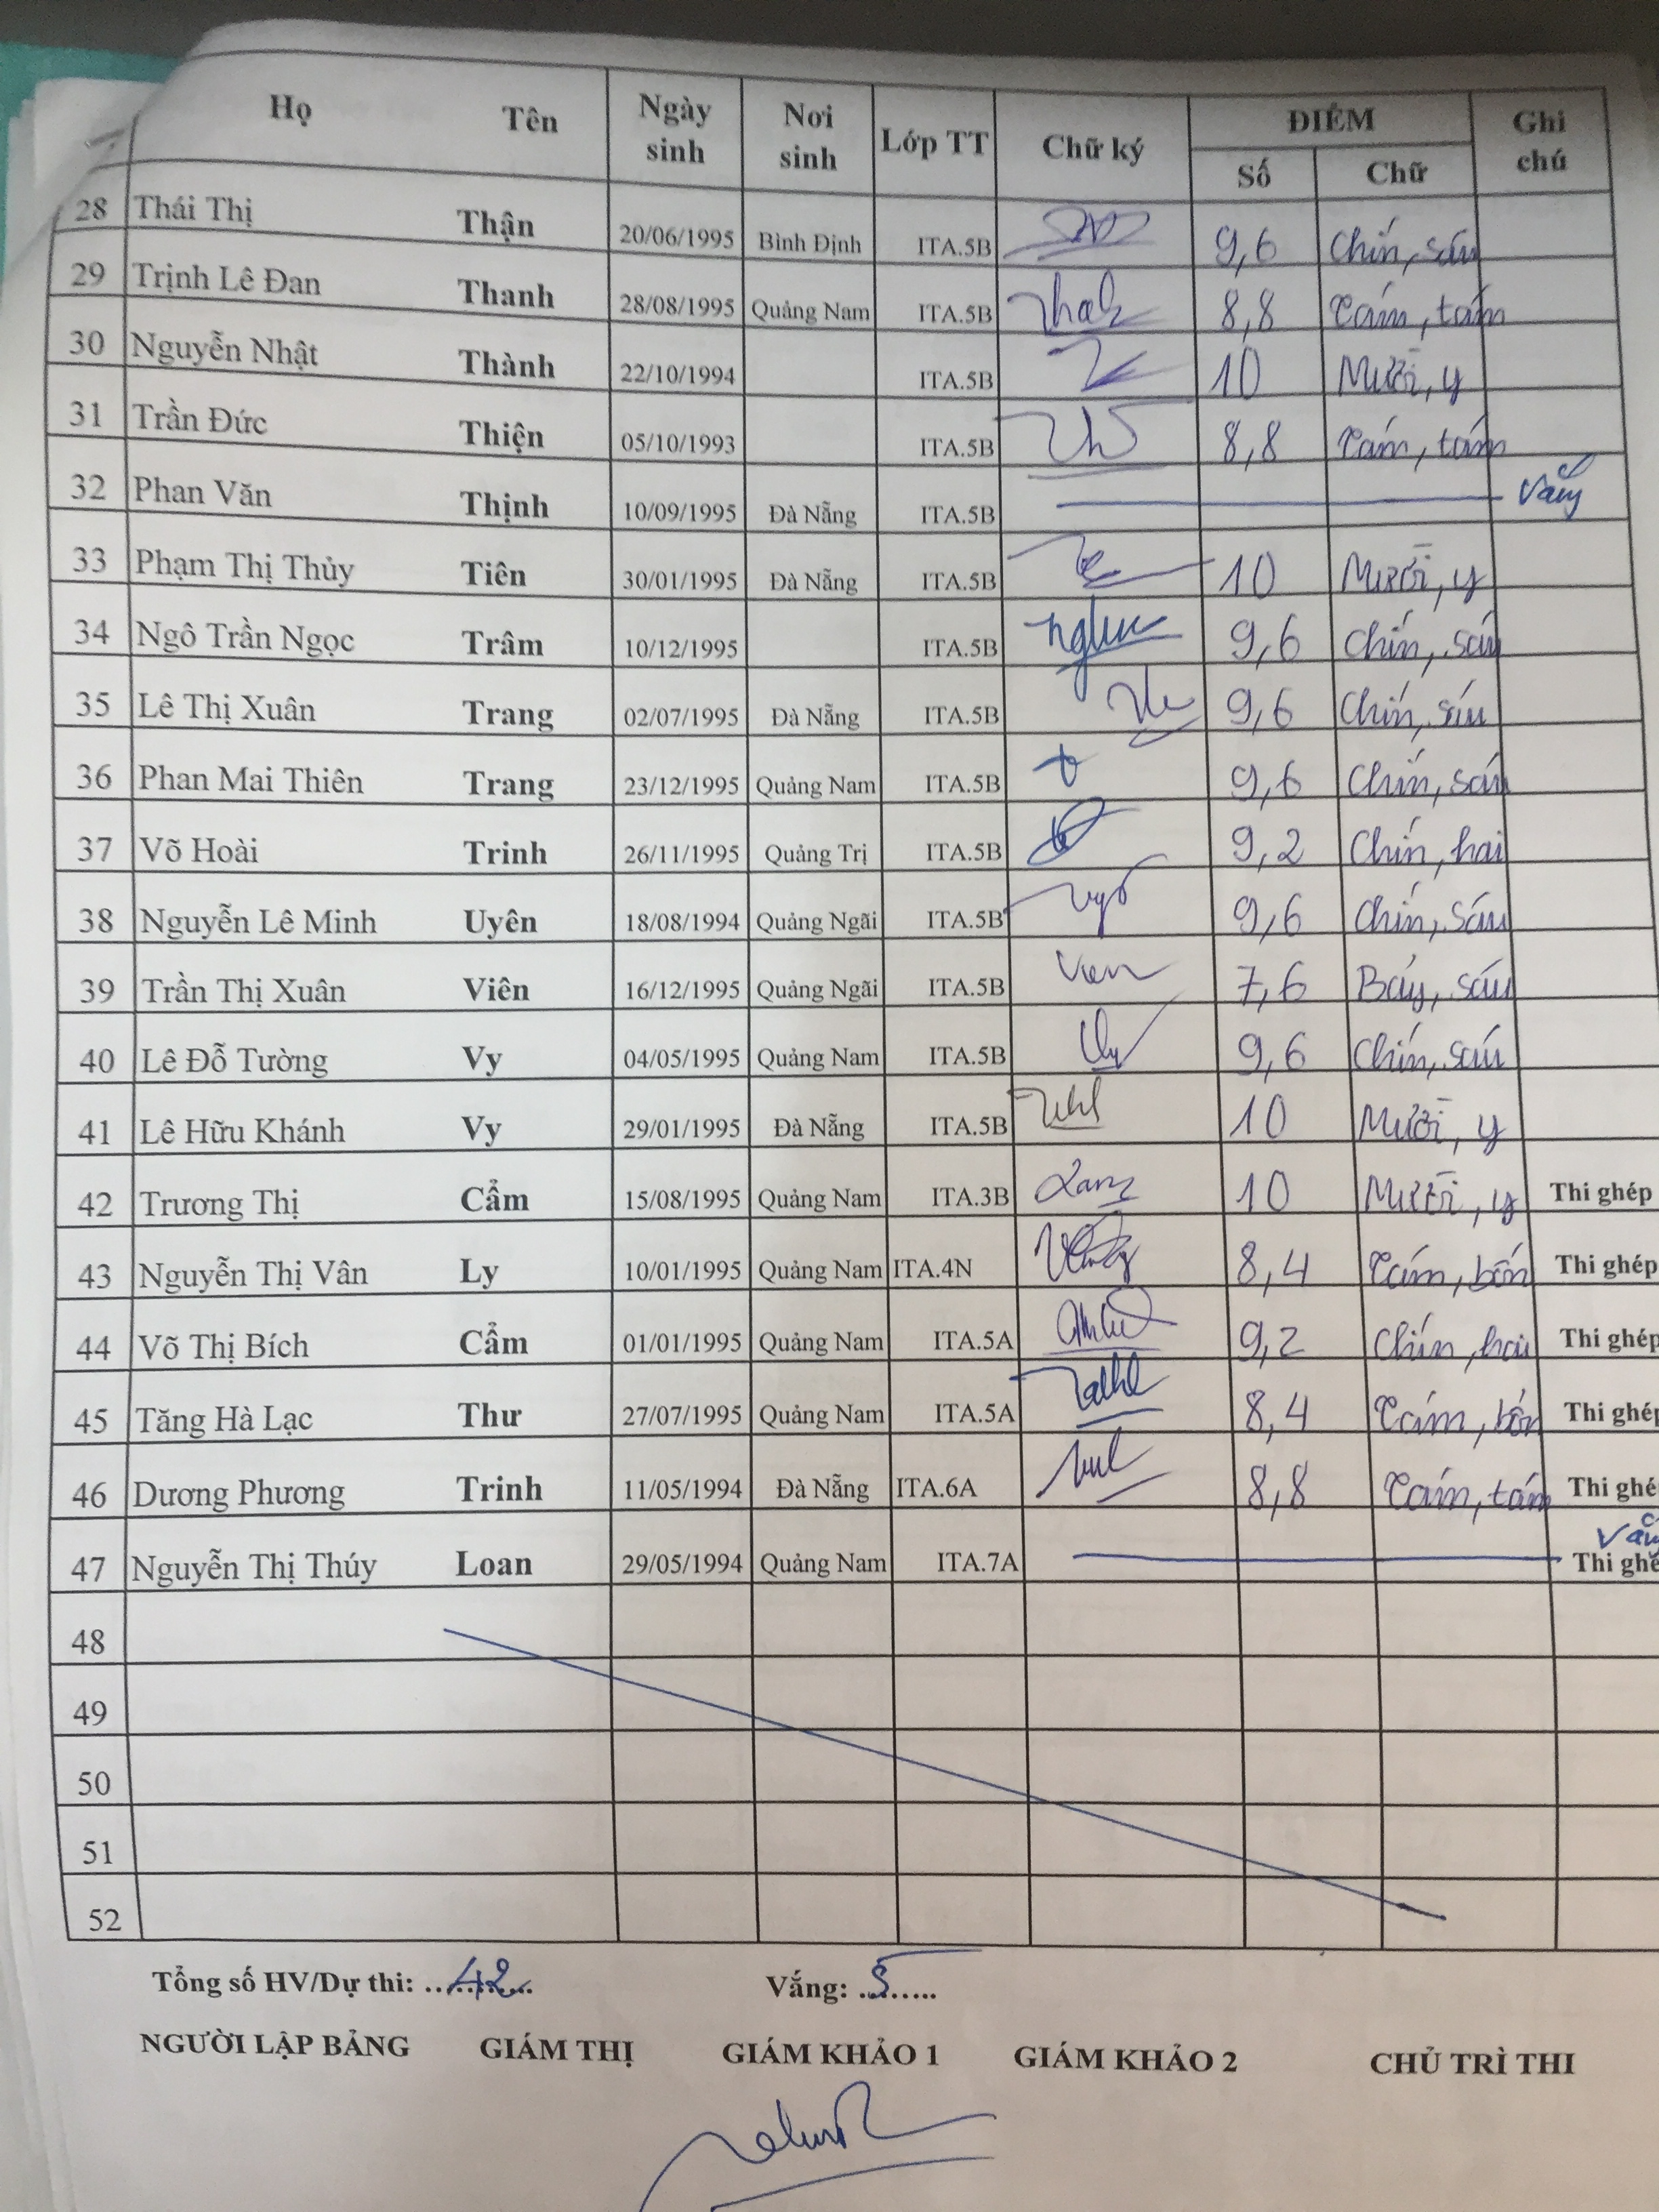 Họ Tên Ngày sinh Nơi sinh Lớp TT Chữ ký ĐIỂM Số Chữ Ghi chú
28 Thái Thị Thận 20/06/1995 Bình Định ITA.5B 9,6 Chín, sáu
29 Trịnh Lê Đan Thanh 28/08/1995 Quảng Nam ITA.5B 8,8 Tám, tám
30 Nguyễn Nhật Thành 22/10/1994 ITA.5B 10 Mười, y
31 Trần Đức Thiện 05/10/1993 ITA.5B 8,8 Tám, tám
32 Phan Văn Thịnh 10/09/1995 Đà Nẵng ITA.5B Vắng
33 Phạm Thị Thủy Tiên 30/01/1995 Đà Nẵng ITA.5B 10 Mười, y
34 Ngô Trần Ngọc Trâm 10/12/1995 ITA.5B 9,6 Chín, sáu
35 Lê Thị Xuân Trang 02/07/1995 Đà Nẵng ITA.5B 9,6 Chín, sáu
36 Phan Mai Thiên Trang 23/12/1995 Quảng Nam ITA.5B 9,6 Chín, sáu
37 Võ Hoài Trinh 26/11/1995 Quảng Trị ITA.5B 9,2 Chín, hai
38 Nguyễn Lê Minh Uyên 18/08/1994 Quảng Ngãi ITA.5B 9,6 Chín, sáu
39 Trần Thị Xuân Viên 16/12/1995 Quảng Ngãi ITA.5B 7,6 Bảy, sáu
40 Lê Đỗ Tường Vy 04/05/1995 Quảng Nam ITA.5B 9,6 Chín, sáu
41 Lê Hữu Khánh Vy 29/01/1995 Đà Nẵng ITA.5B 10 Mười, y
42 Trương Thị Cẩm 15/08/1995 Quảng Nam ITA.3B 10 Mười, y Thi ghép
43 Nguyễn Thị Vân Ly 10/01/1995 Quảng Nam ITA.4N 8,4 Tám, bốn Thi ghép
44 Võ Thị Bích Cẩm 01/01/1995 Quảng Nam ITA.5A 9,2 Chín, hai Thi ghép
45 Tăng Hà Lạc Thư 27/07/1995 Quảng Nam ITA.5A 8,4 Tám, bốn Thi ghép
46 Dương Phương Trinh 11/05/1994 Đà Nẵng ITA.6A 8,8 Tám, tám Thi ghé
47 Nguyễn Thị Thúy Loan 29/05/1994 Quảng Nam ITA.7A Vắng Thi ghé
48
49
50
51
52
Tổng số HV/Dự thi: 42 Vắng: 5
NGƯỜI LẬP BẢNG GIÁM THỊ GIÁM KHẢO 1 GIÁM KHẢO 2 CHỦ TRÌ THI